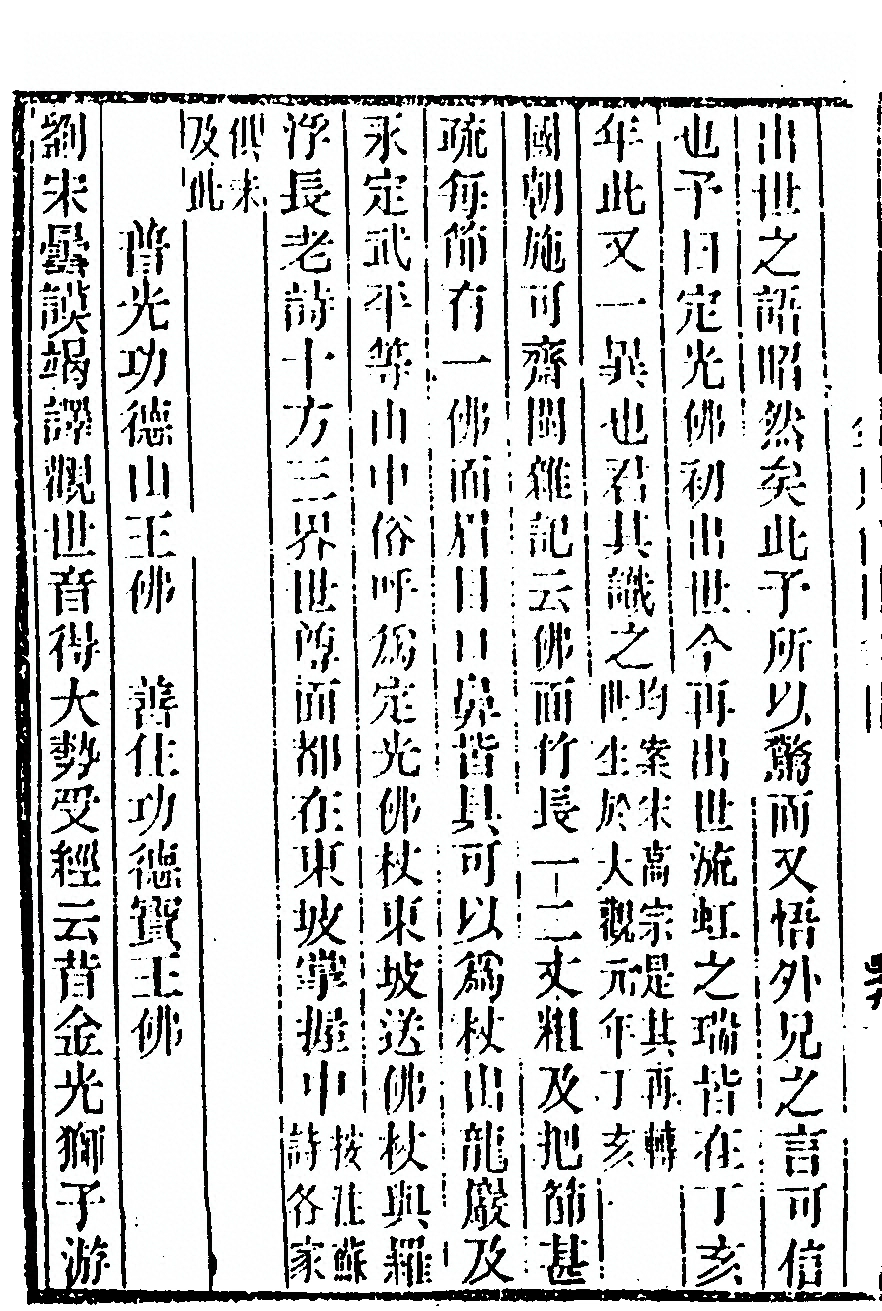 出世之語昭然矣此予所以驚而又悟外兄之言可信
也予曰定光佛初出世今再出世流虹之瑞皆在丁亥
年此又一異也君其識之均案宋高宗是其再轉世生於大觀元年丁亥
國朝施可齋閩雜記云佛面竹長一二丈粗及把節甚
疏每節有一佛面眉目口鼻皆具可以為杖出龍巖及
永定武平等山中俗呼為定光佛杖東坡送佛杖與羅
浮長老詩十方三界世尊面都在東坡掌握中按注蘇詩各家
俱未及此
普光功德山王佛　善住功德寶王佛
劉宋曇謨竭譯觀世音得大勢受經云昔金光獅子游